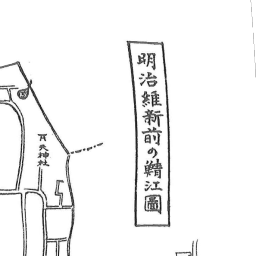 明治維新前の鯖江圖
天神社